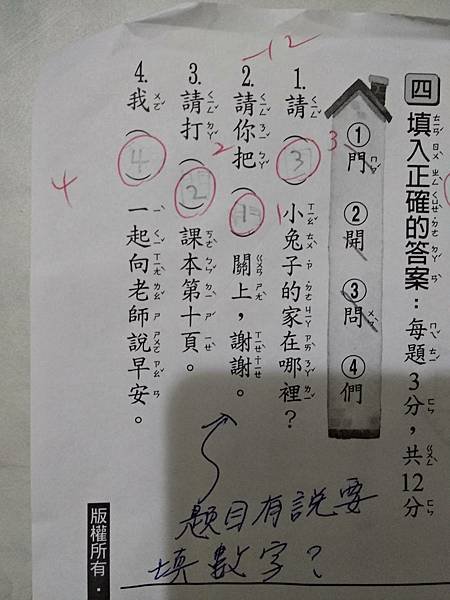 四 填入正確的答案：每題3分，共12分
①門 ②開 ③問 ④們
-12
1. 請（3）小兔子的家在哪裡？
3
2. 請你把（1）關上，謝謝。
1
3. 請打（2）課本第十頁。
2
4. 我（4）一起向老師說早安。
4
題目有說要
填數字？
版權所有·